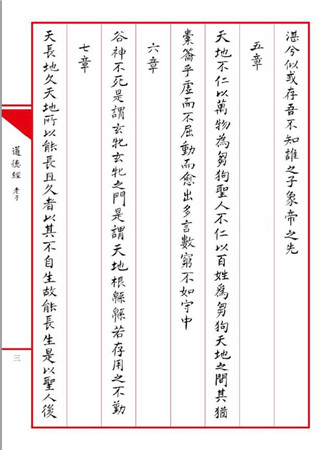 湛兮似或存吾不知誰之子象帝之先
五章
天地不仁以萬物為芻狗聖人不仁以百姓爲芻狗天地之間其猶
橐籥乎虛而不屈動而愈出多言數窮不如守中
六章
谷神不死是謂玄牝玄牝之門是謂天地根緜緜若存用之不勤
七章
天長地久天地所以能長且久者以其不自生故能長生是以聖人後
道德經 老子
三